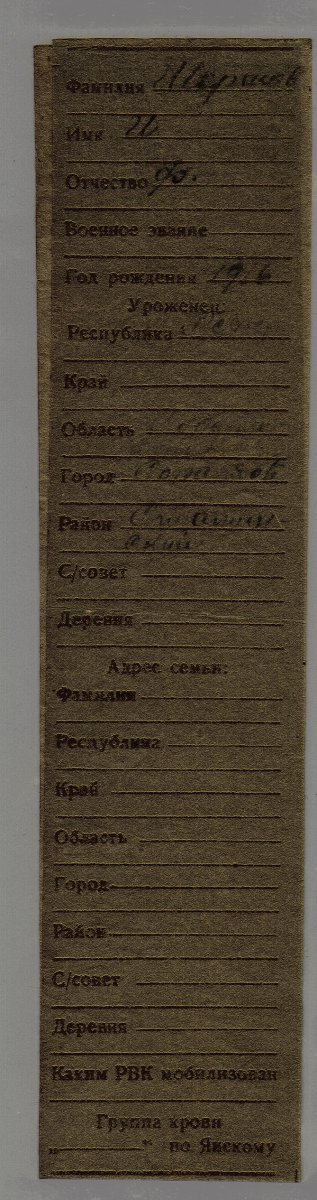 Фамилия
Имя И
Отчество Ф.
Военное звание
Год рождения 1916
Уроженец:
Республика
Край
Область
Город
Район
С/совет
Деревня
Адрес семьи:
Фамилия
Республика
Край
Область
Город
Район
С/совет
Деревня
Каким РВК мобилизован
Группа крови
„ “ по Янскому